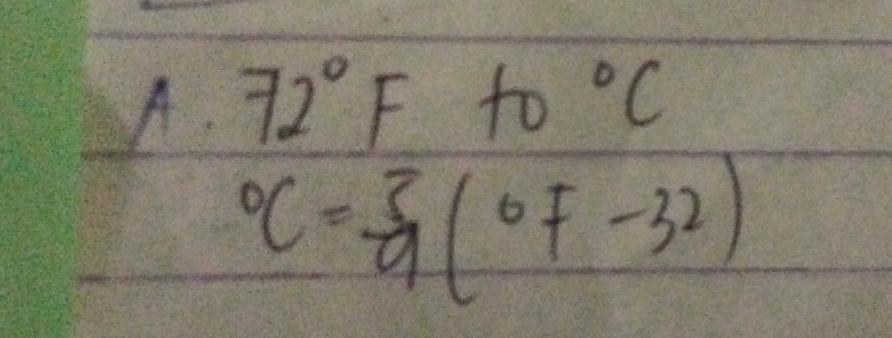 A. 72° F to °C
°C = 5/9 ( °F - 32)